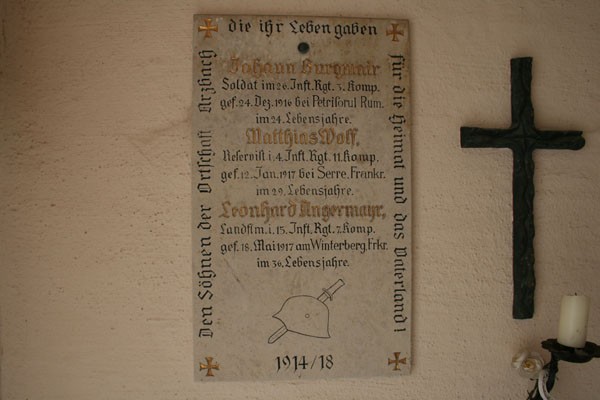 Den Söhnen der Ortschaft Arzbach
die ihr Leben gaben
für die Heimat und das Vaterland!
Johann Burgmair
Soldat im 26. Inft. Rgt. 3. Komp.
gef. 24. Dez. 1916 bei Petrisorul Rum.
im 24. Lebensjahre.
Matthias Wolf,
Reservist i. 4. Inft. Rgt. 11. Komp.
gef. 12. Jan. 1917 bei Serre, Frankr.
im 29. Lebensjahre.
Leonhard Angermayr,
Landstm. i. 15. Inft. Rgt. 7. Komp.
gef. 18. Mai 1917 am Winterberg, Frkr.
im 36. Lebensjahre.
1914/18